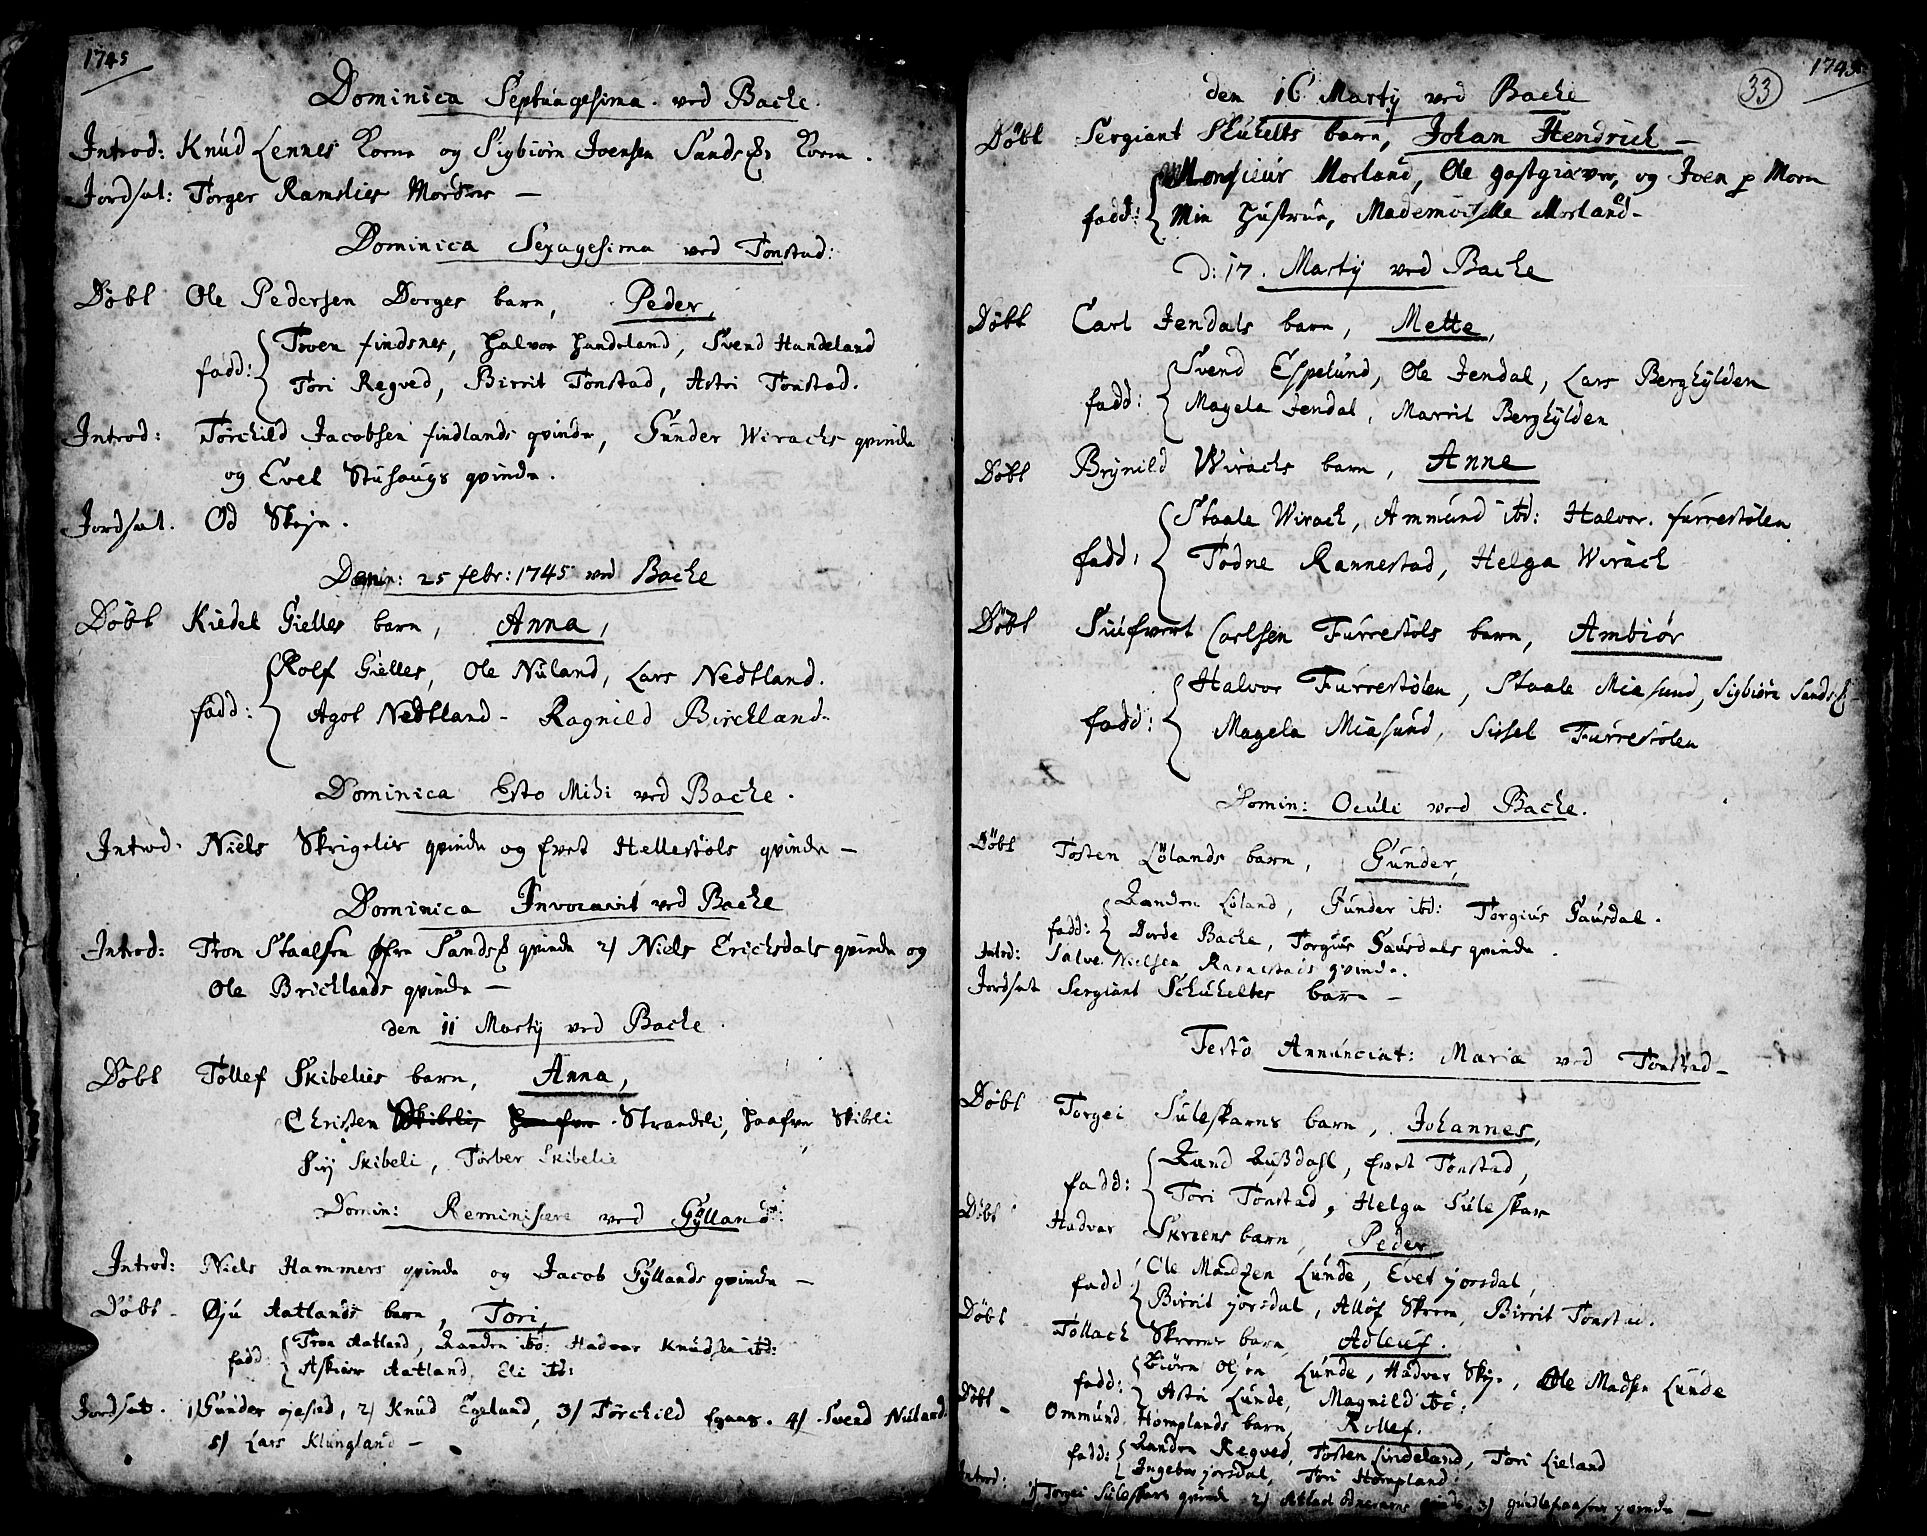 1745
Dominica Septuagesima ved Bache.
Introd: Knud Lennes Kone og Sigbiörn Joensen Sands Kone.
Jordsat: Torger Ramslies Moder —
Dominica Sexagesima ved Tonstad:
Döbt Ole Pedersen Dorges barn, Peder,
Toven findsnes, Halvor Handeland, Svend Handeland
fadd: Tori Regved, Birrit Tonstad, Astri Tonstad.
Introd: Torchild Jacobsen findlands qvinde, Gunder Wirachs qvinde
og Evet Stuhaugs qvinde.
Jordsat. Od Skeje.
Domin: 25 febr: 1745 ved Bache
Döbt Kiedel Gielles barn, Anna,
Rolf Gielles, Ole Nuland, Lars Nedtland.
fadd: Agot Nedtland - Ragnild Birchland.
Dominica Esto Mihi ved Bache.
Introd. Niels Skrigelies qvinde og Evet Hellestöls qvinde —
Dominica Invocavit ved Bache
Introd: Tron Staalsen Öfre Sands qvinde 2) Niels Erichsdals qvinde og
Ole Bricklands qvinde —
den 11 Martij ved Bache.
Döbt Tollef Skibelies barn, Anna,
Christen Strandeli, Haafver Skibeli
Siri Skibeli, Torber Skibelie
Domin: Reminiscere ved Gylland:
Introd: Niels Hammers qvinde og Jacob Gyllands qvinde —
Döbt - Öju Aatlands barn, Tori,
Tron Aatland, Randen ibd: Hadvar Knudsen ibd:
fadd: Askier Aatland, Eli ibd:
Jordsat. 1) Gunder Ojestad, 2) Knud Egeland, 3) Torchild Egaas. 4) Svend Nuland.
5) Lars Klungland —
1745
33
den 16 Martij ved Bache
Döbt Sergiant Schuhelts barn, Johan Hendrich —
Monsieur Morland, Ole gastgiver, og Joen p Morn
fadd: Min Hustrue, Mademoiselle Morland -
D: 17. Martij ved Bache
Döbt Carl Jendals barn, Mette,
Svend Espelund, Ole Jendal, Lars Berghylden
fadd: Magela Jendal, Marrit Berghylden
Döbt Brynild Wirachs barn, Anne
Staale Wirach, Ammund ibd: Halvor. furrestölen
fadd: Todne Rannestad, Helga Wirach
Döbt Siufvert Carlsen Furrestöls barn, Ambiör
Halvor Furrestölen, Staale Miasund, Sigbiörn Sands
fadd: Magela Miasund, Sissel Furrestölen
Domin: Oculi ved Bache.
Döbt Tosten Lölands barn, Gunder,
Randen Löland, Gunder ibd: Torgius Gausdal.
fadd: Dorde Bache, Torgius Gausdals qvinde.
Introd: Salve Nielsen Rannestads qvinde.
Jordsat Sergiant Schuheltes barn —
Festo Annunciat: Maria ved Tonstad —
Döbt Torgei Suleskarns barn, Johannes,
Rand Lußdahl, Evet Tonstad,
fadd: Tori Tonstad, Helga Suleskar
Döbt Hadvar Skreens barn, Peder
Ole Madzen Lunde, Evet Jorsdal,
fadd: Birrit Jorsdal, Allof Skreen, Birrit Tonstad.
Döbt Tollach Skreens barn, Adleuf.
Biörn Olsen Lunde, Hadvar Skeje, Ole Madsen Lunde
fadd: Astri Lunde, Magnild ibd:
Döbt - Ommund Homplands barn, Rollef.
Randen Regved, Tosten Lindeland, Tori Lieland
fadd: Ingebor Jorsdal, Tori Hompland
Introd: 1) Torgei Suleskars qvinde 2) Atlad qvinde, 3) qvinde —